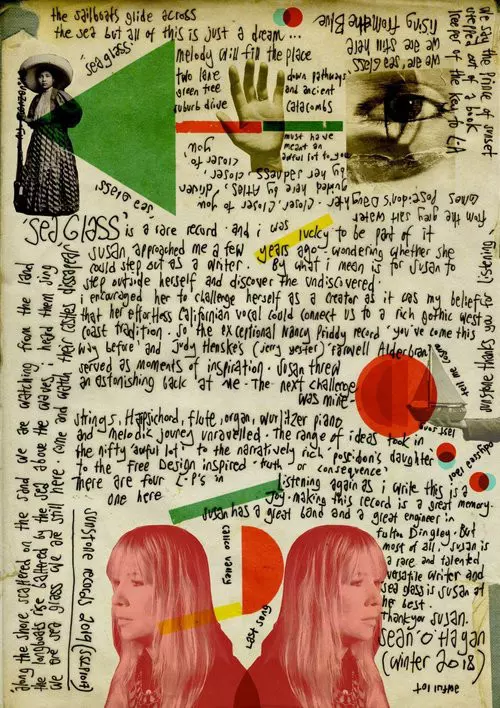 the sailboats glide across
the sea but all of this is just a dream...
'sea glass'
melody will fill the place
two lane
green tree
suburb drive
down pathways
and ancient
catacombs
must have
meant an
awful lot to you
rising from the Blue
we are still here
we are, sea glass
we say the prince of sunset
stepped out of a book
keeper of the key to L.A
sea glass.
closer to
you
guided here by Atlas, driven
by her address, closer,
closer, closer to you
comes Poseidon's Daughter
from the grey salt water
'SEA GLASS' is a rare record. and i was lucky to be part of it
Susan approached me a few years ago - wondering whether she
could step out as a writer. By what i mean is for susan to
step outside herself and discover the undiscovered.
i encouraged her to challenge herself as a creator as it was my belief
that her effortless Californian vocal could connect us to a rich gothic west
coast tradition. So the exceptional Nancy Priddy record 'you've come this
way before' and Judy Henske's (jerry yester) 'Farewell Aldebran'
served as moments of inspiration. Susan threw
an astonishing back at me - The next challenge
was mine -
Strings, Harpsichord, flute, organ, wurlitzer piano
and melodic jouney unravelled. The range of ideas took in
the nifty 'awful lot' to the narratively rich 'poseidon's daughter'
to the Free Design inspired 'truth or consequence'
There are four L.P's in
one here
Listening again as i write this is a
joy. making this record is a great memory.
Susan has a great band and a great engineer in
fulton Dingley. But
most of all. Susan is
a rare and talented
versatile writer and
sea glass is susan at
her best.
Thankyou Susan.
Sean O'Hagan
(winter 2018)
awful lot
calico valley
last song
sunstone records 2019
along the shore scattered on the sand we are watching from the land
the longboats rise battered by the sea above the waves, i heard them sing
we are sea glass we are still here. come and watch their castles dissapear
sunstone thanks you for listening
tell me again
last song